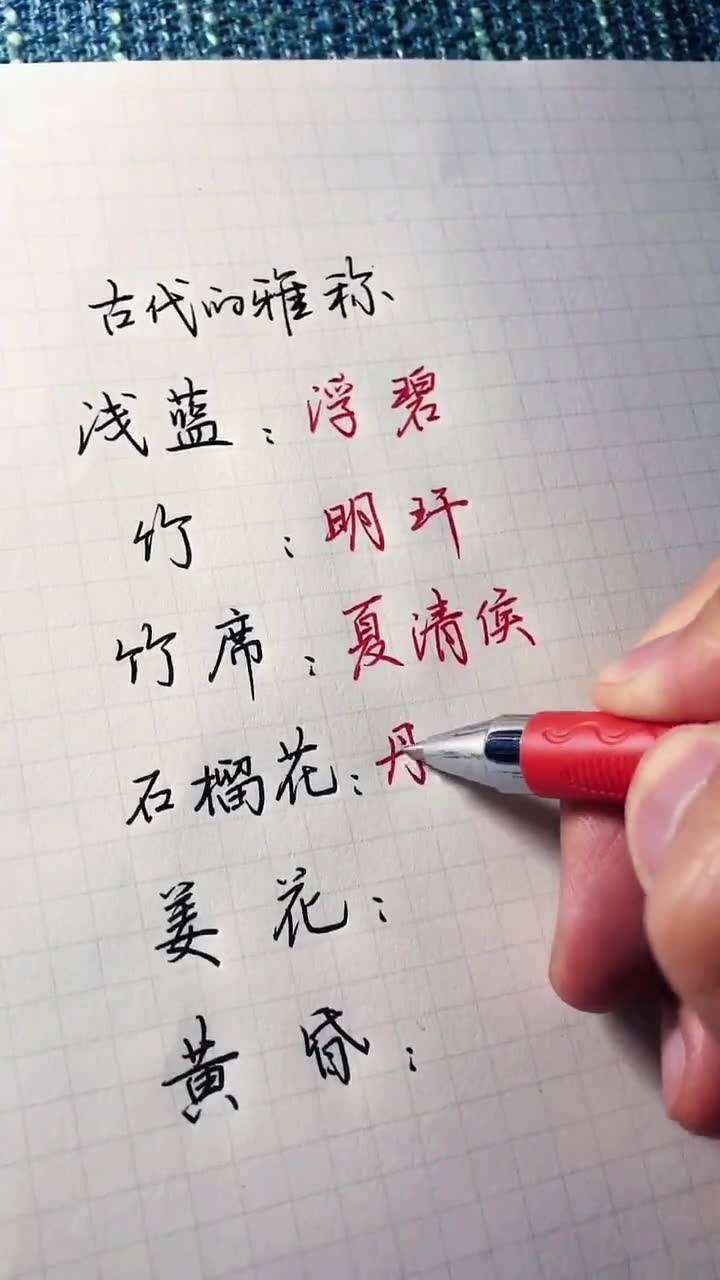 古代的雅称
浅蓝：浮碧
竹：明玕
竹席：夏清侯
石榴花：丹
姜花：
黄昏：